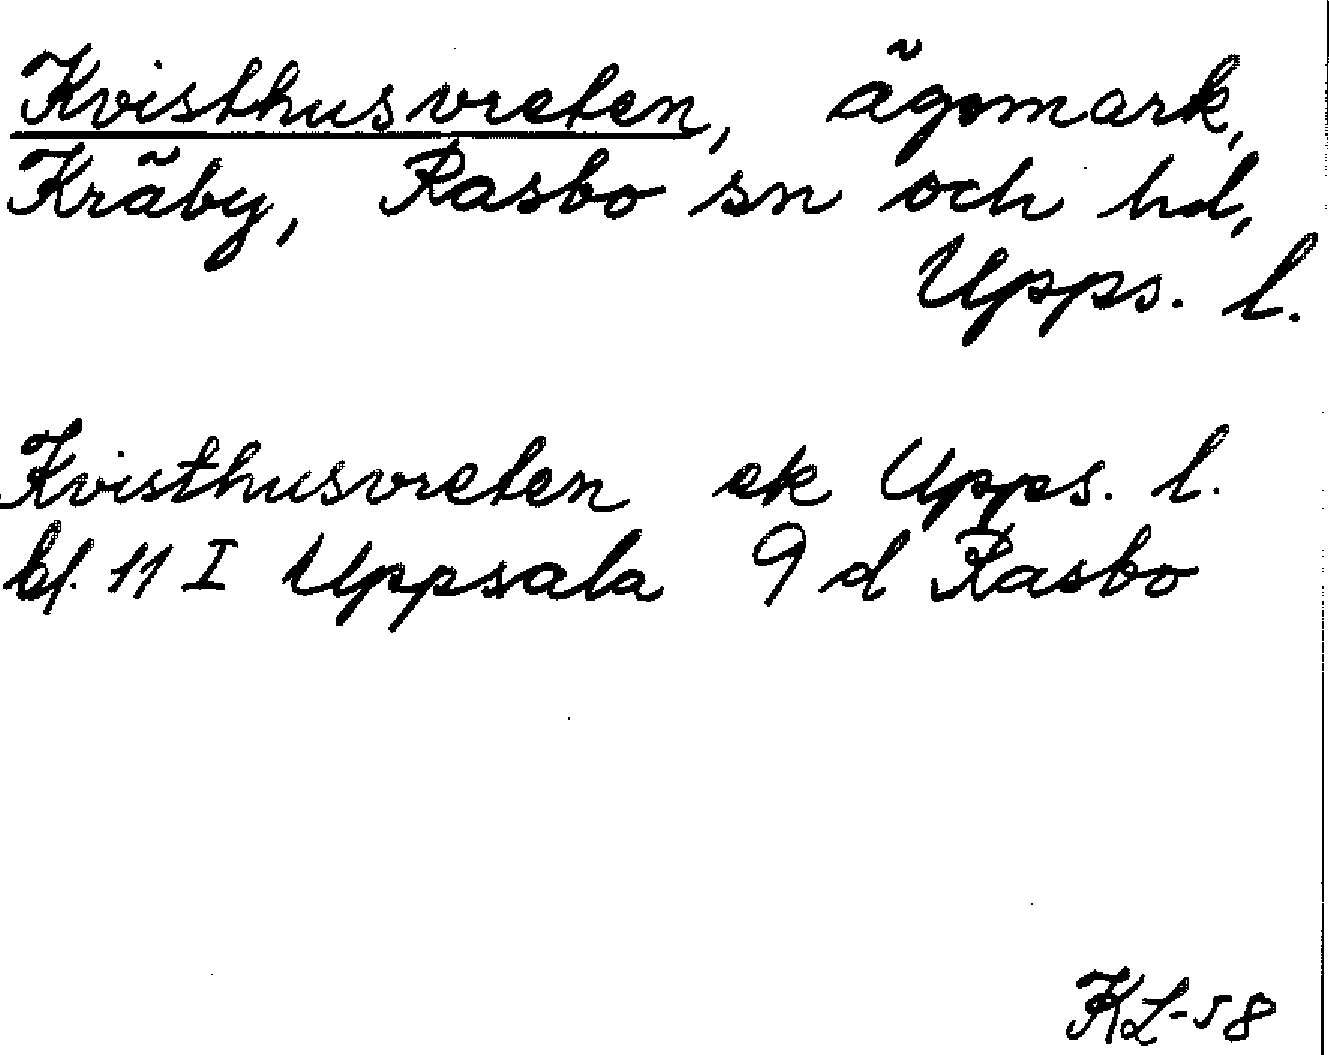 Kvisthusvreten, ägomark,
Kräby, Rasbo sn och hd,
Upps. l.
Kvisthusvreten ek Upps. l.
bl. 11 I Uppsala 9 d Rasbo
KL-58